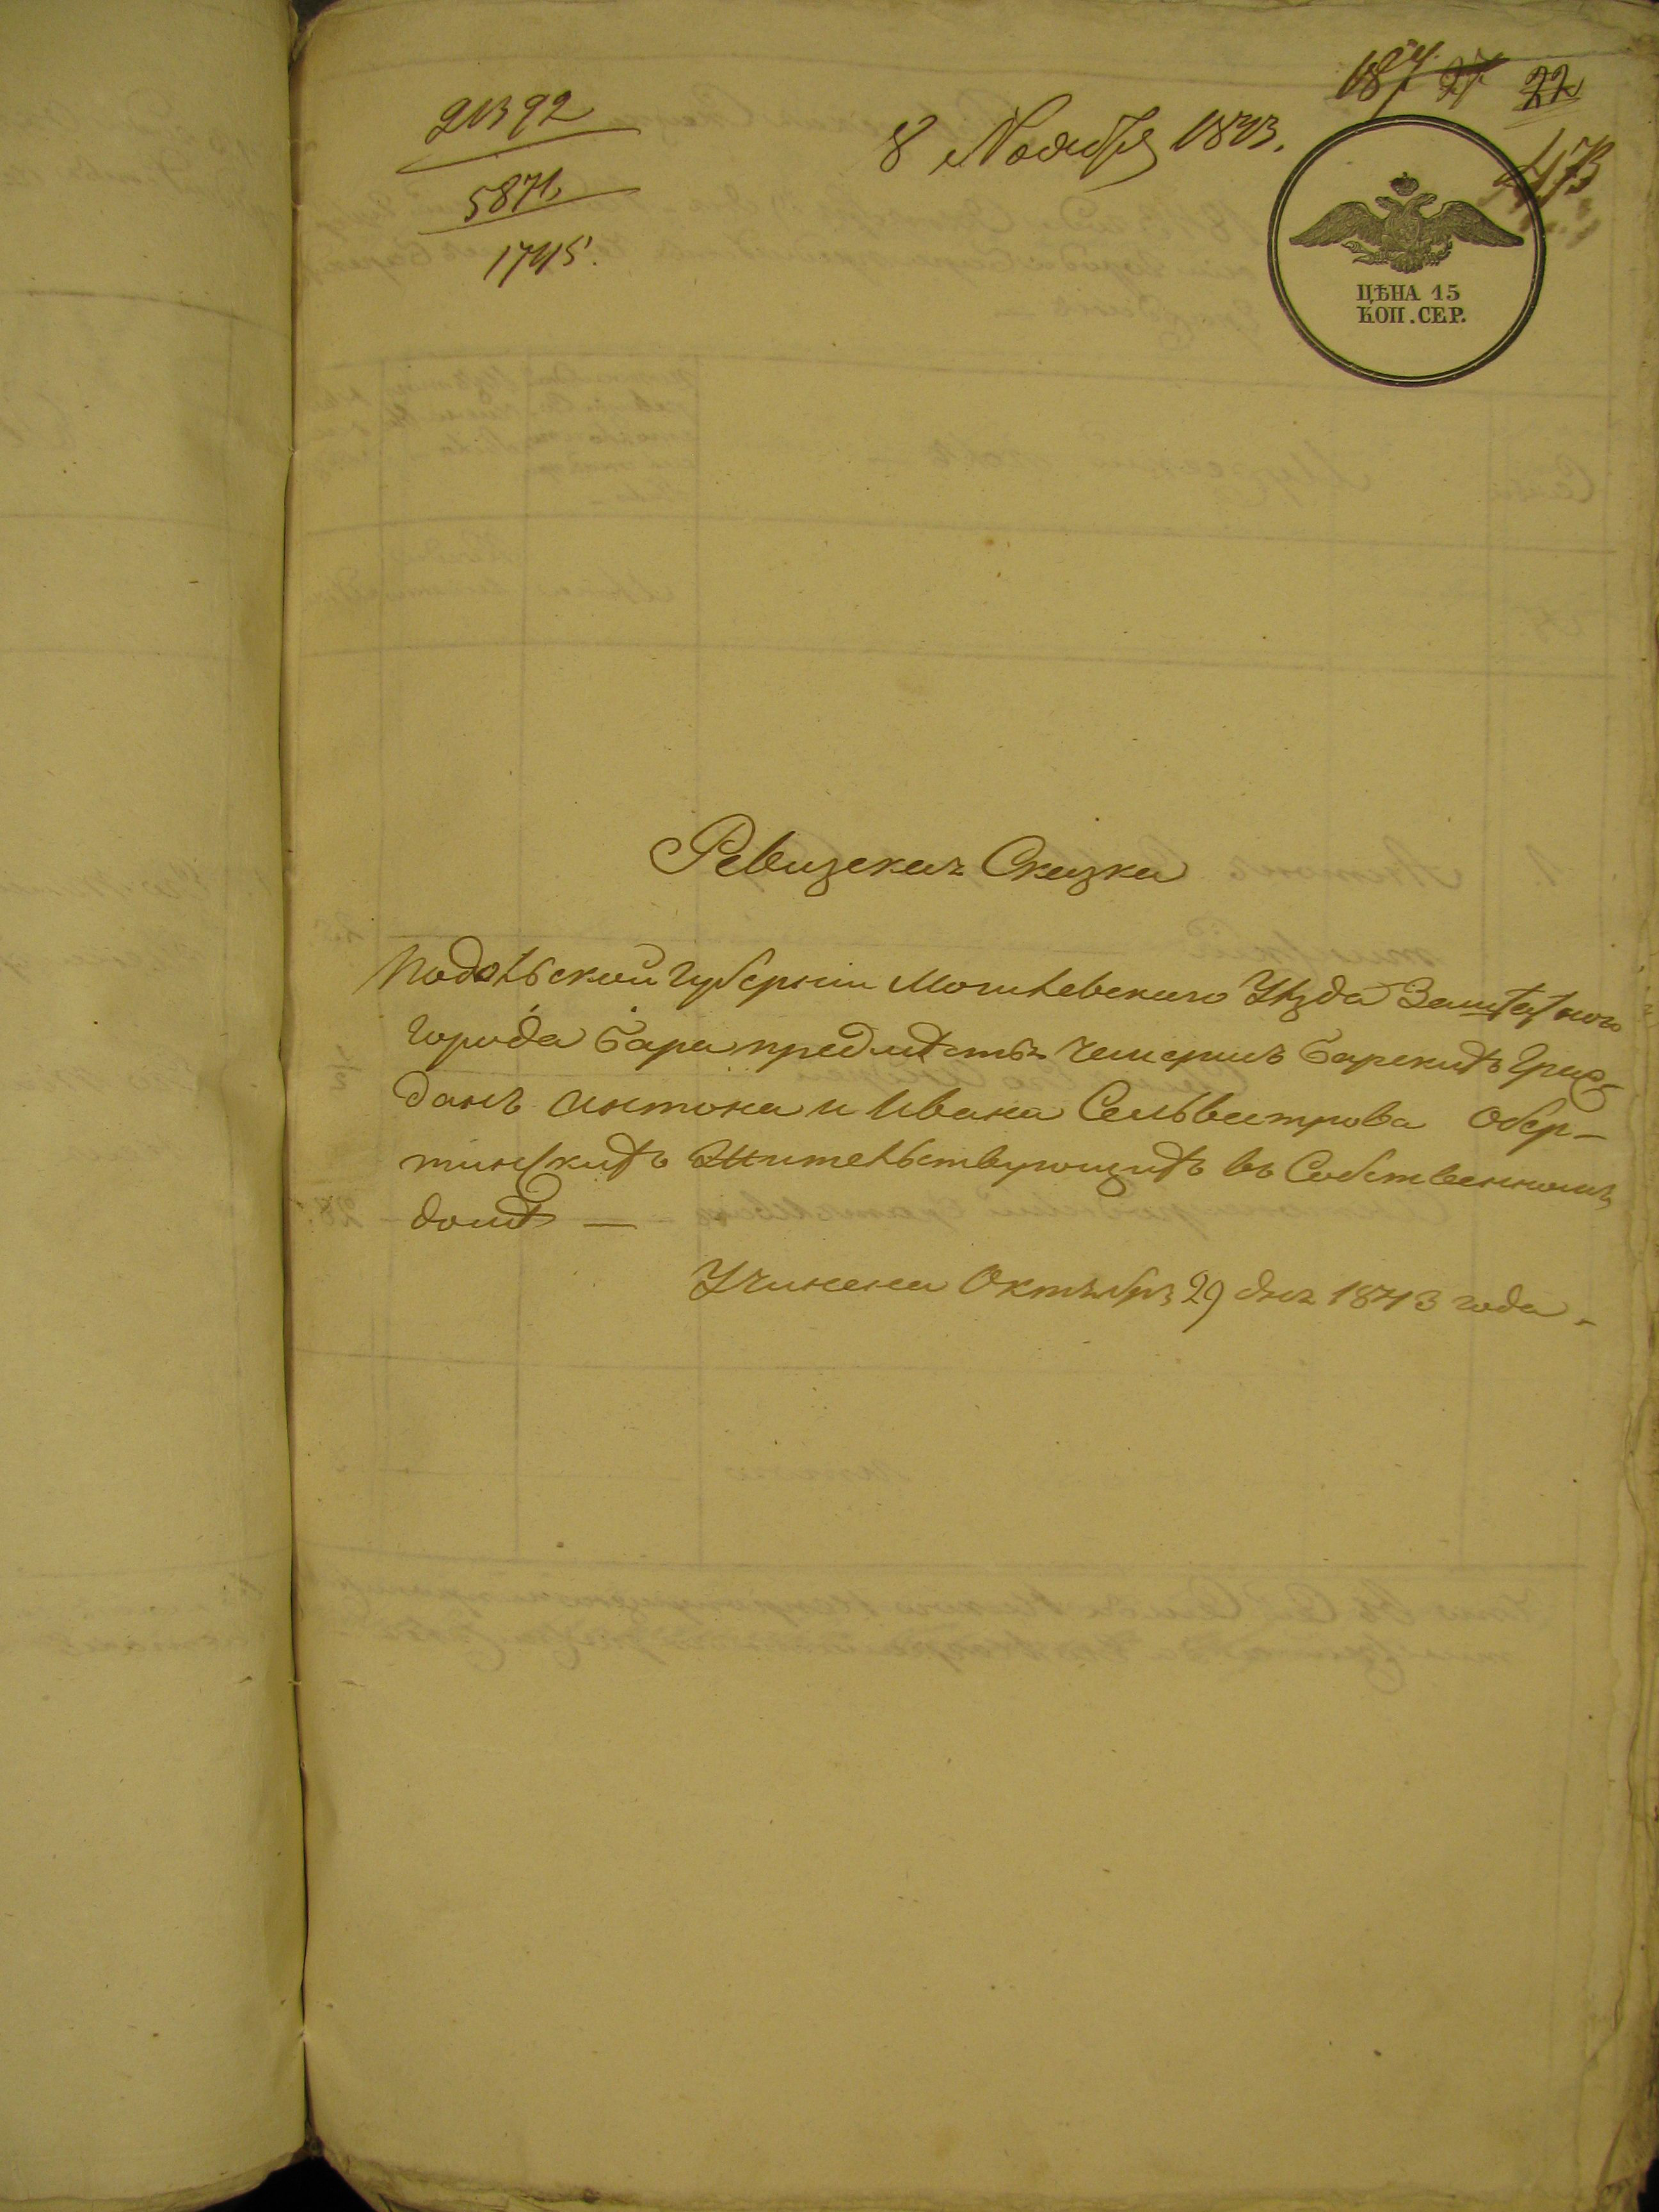 21392
5871,
1745.
8 Ноября 1843.
187 27 22
473
ЦѢНА 15
КОП. СЕР.
Ревизская Сказка
Подольской Губерніи Могилевскаго Уѣзда Заштатного
города Бара предмѣстья Чемерисъ Барскихъ Граж
данъ Антона и Ивана Сельвестрова Обер-
тинскихъ Жительствующихъ въ Собственномъ
домѣ —
Учинена Октября 29 дня 1843 года.